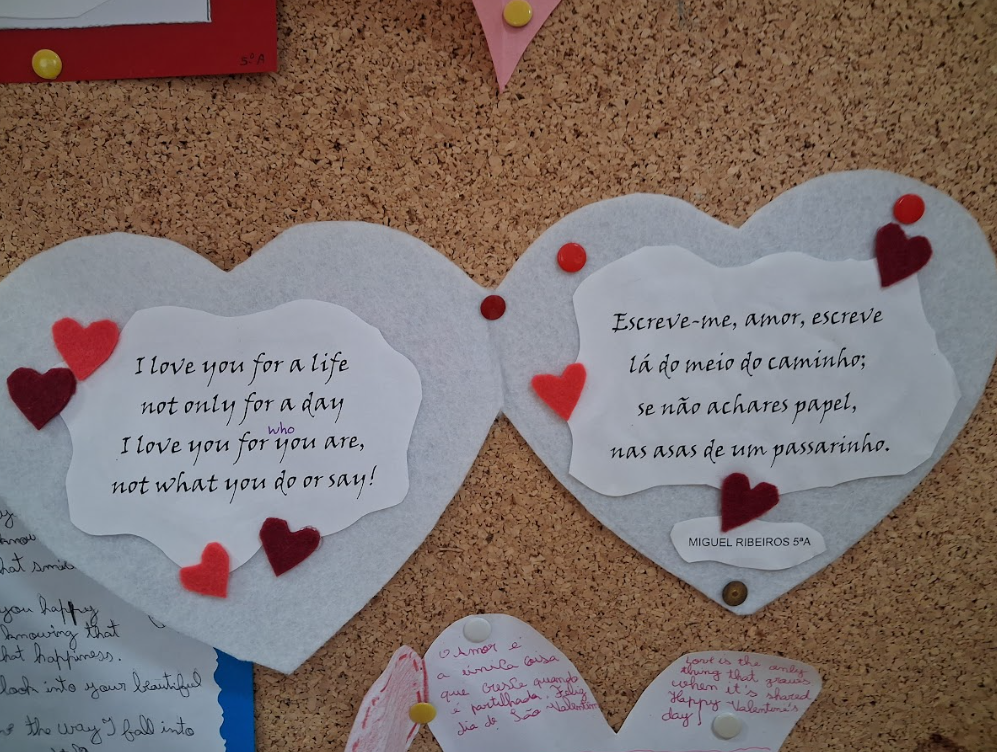 5.º A
I love you for a life
not only for a day
who
I love you for you are,
not what you do or say!
Escreve-me, amor, escreve
lá do meio do caminho;
se não achares papel,
nas asas de um passarinho.
MIGUEL RIBEIROS 5ªA
you happy
knowing that
hat happiness.
look into your beautiful
the way I fall into
O Amor é
a única coisa
que cresce quando
é partilhada. Feliz
dia de São Valentim
Love is the only
thing that grows
when it's shared
Happy Valentine's
day!